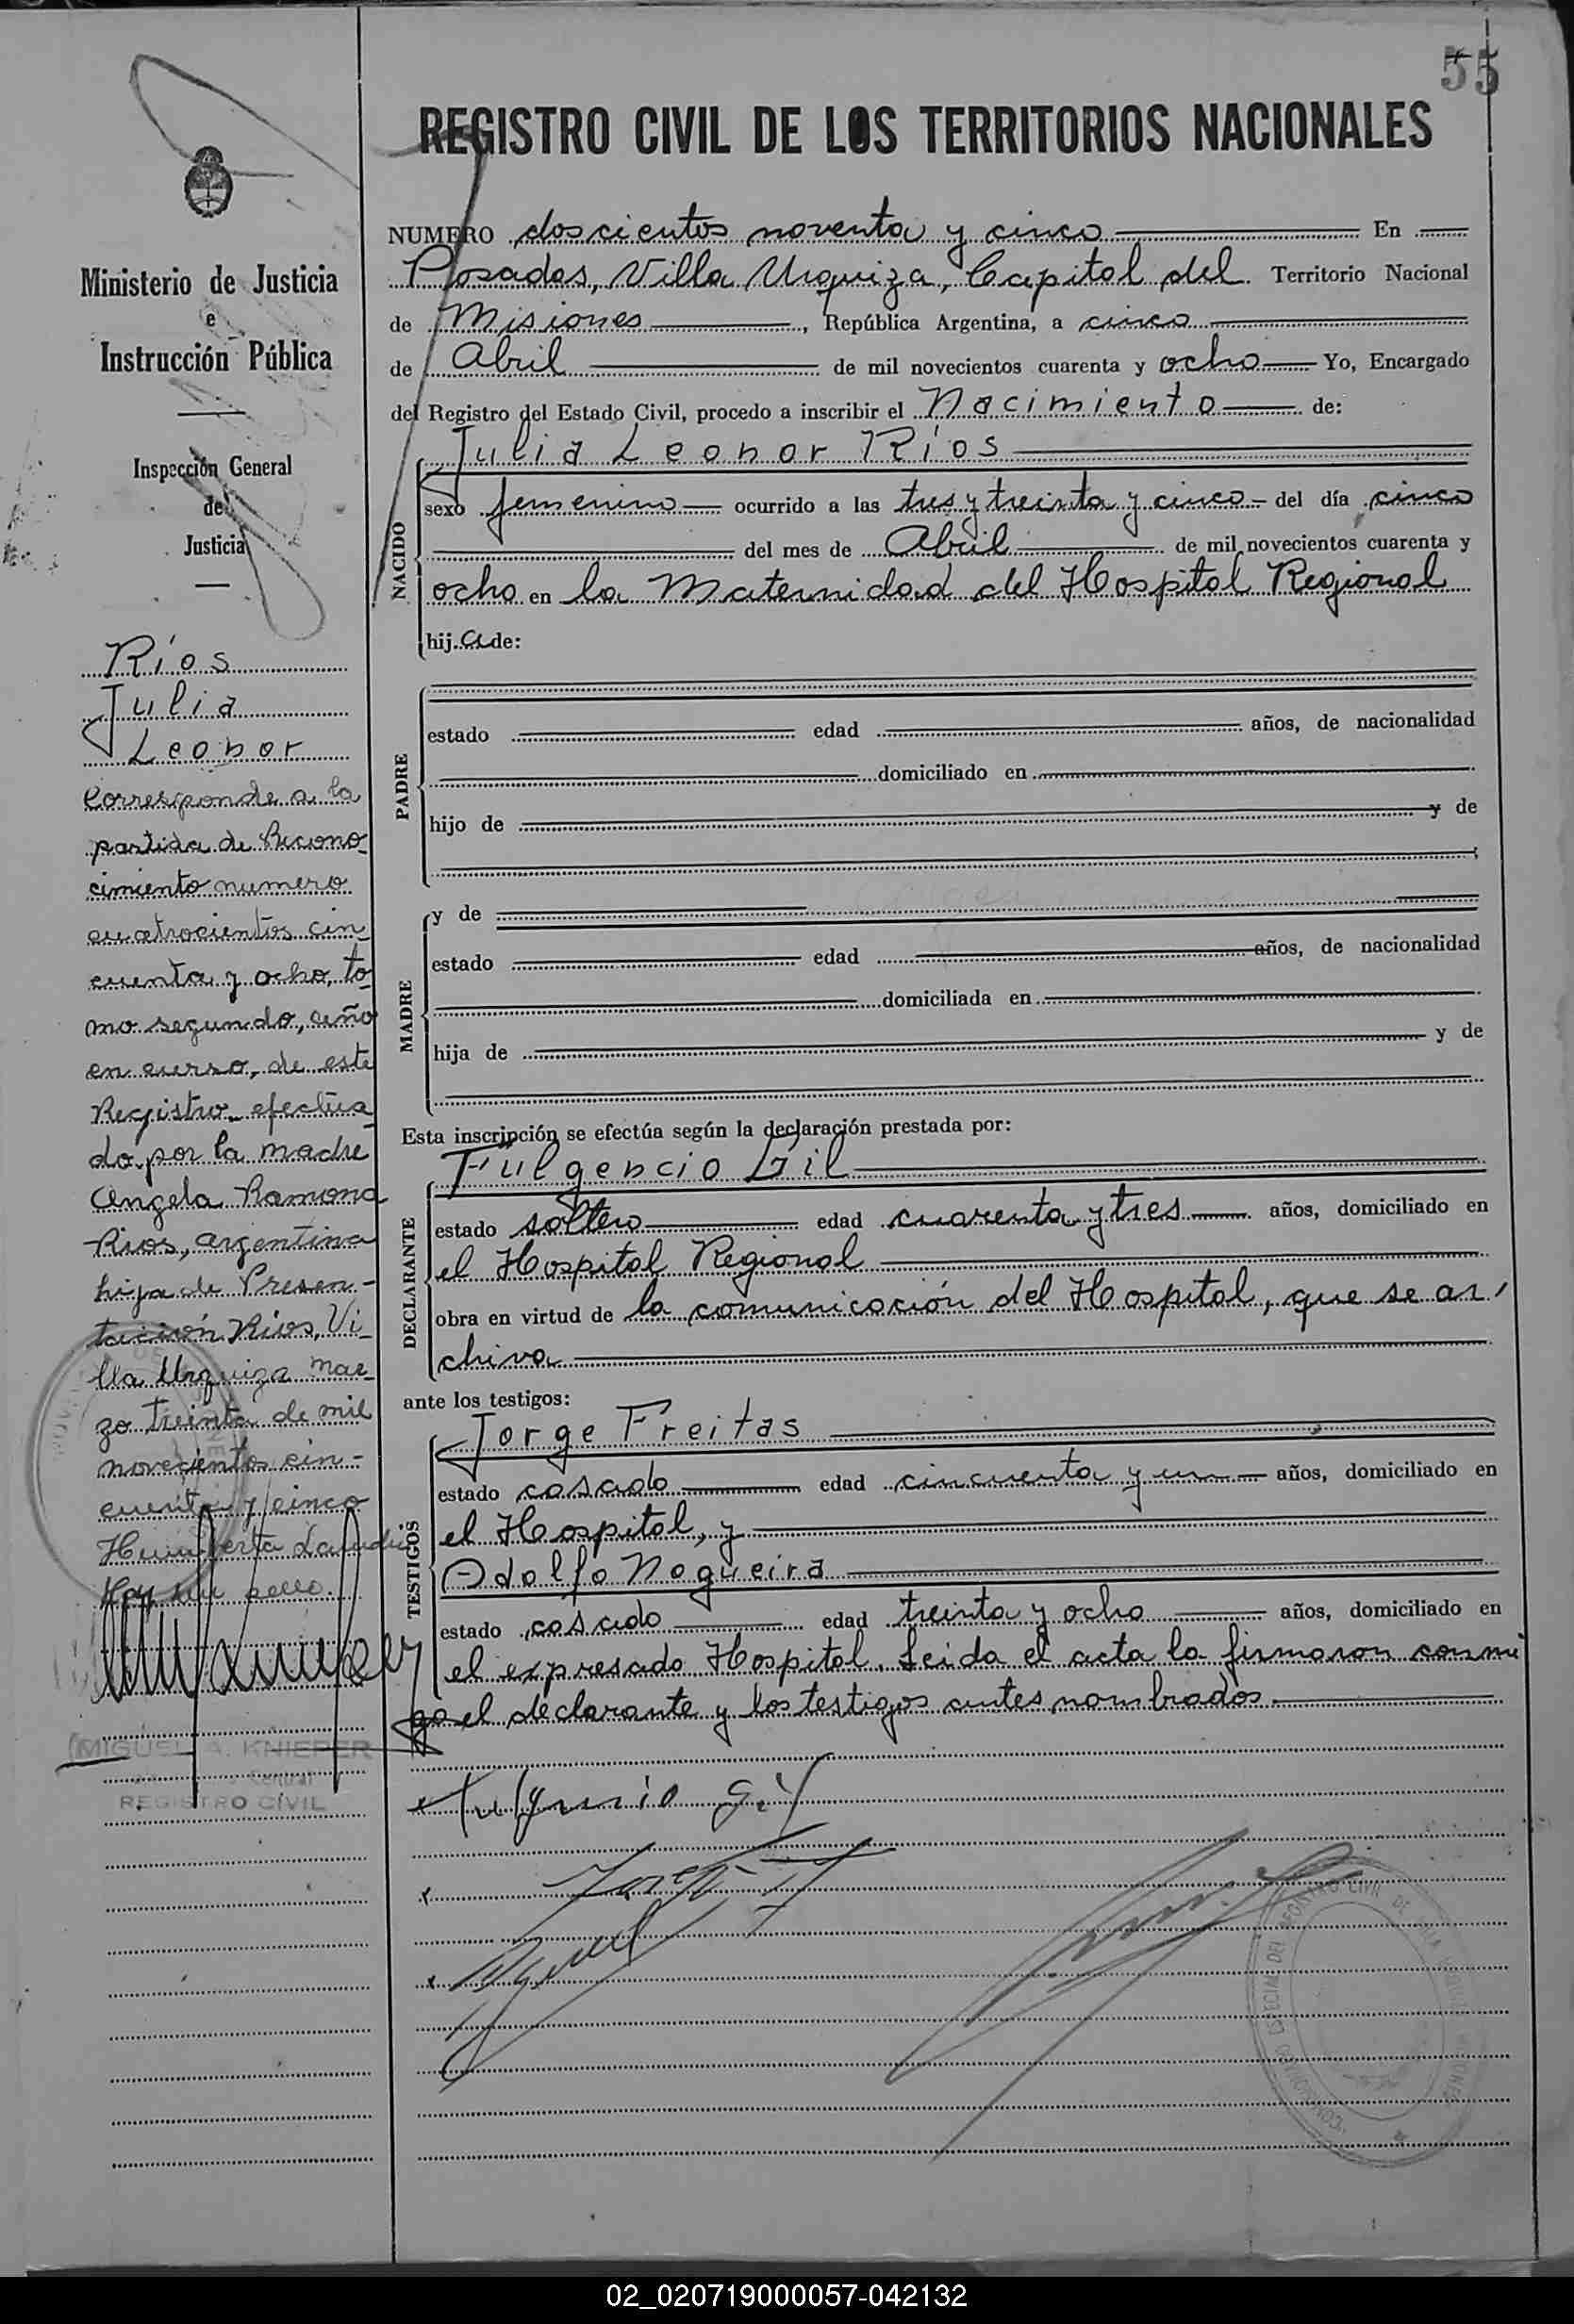 55
REGISTRO CIVIL DE LOS TERRITORIOS NACIONALES
Ministerio de Justicia
e
Instrucción Pública
Inspección General
de
Justicia
Ríos
Julia
Leonor
Corresponde a la
partida de Recono-
cimiento numero
cuatrocientos cin-
cuenta y ocho, to-
mo segundo, año
en curso, de este
Registro efectua-
do por la madre
Angela Ramona
Rios, argentina
hija de Presen-
tación Ríos, Vi-
lla Urquiza mar-
zo treinta de mil
novecientos cin-
cuenta y cinco
Hay un sello.
MIGUEL A. KNIEPER
Central
REGISTRO CIVIL
NUMERO doscientos noventa y cinco En
Posadas, Villa Urquiza, Capital del Territorio Nacional
de Misiones, República Argentina, a cinco
de Abril de mil novecientos cuarenta y ocho Yo, Encargado
del Registro del Estado Civil, procedo a inscribir el Nacimiento de:
Julia Leonor Ríos
NACIDO
sexo femenino ocurrido a las tres y treinta y cinco del día cinco
del mes de Abril de mil novecientos cuarenta y
ocho en la Maternidad del Hospital Regional
hij a de:
PADRE
estado edad años, de nacionalidad
domiciliado en
hijo de y de
y de
MADRE
estado edad años, de nacionalidad
domiciliada en
hija de y de
Esta inscripción se efectúa según la declaración prestada por:
Fulgencio Gil
DECLARANTE
estado soltero edad cuarenta y tres años, domiciliado en
el Hospital Regional
obra en virtud de la comunicación del Hospital, que se ar-
chiva
ante los testigos:
Jorge Freitas
TESTIGOS
estado casado edad cincuenta y un años, domiciliado en
el Hospital, y
Adolfo Nogueira
estado casado edad treinta y ocho años, domiciliado en
el expresado Hospital. Leida el acta la firmaron conmi
go el declarante y los testigos antes nombrados
Fulgencio Gil
02_020719000057-042132